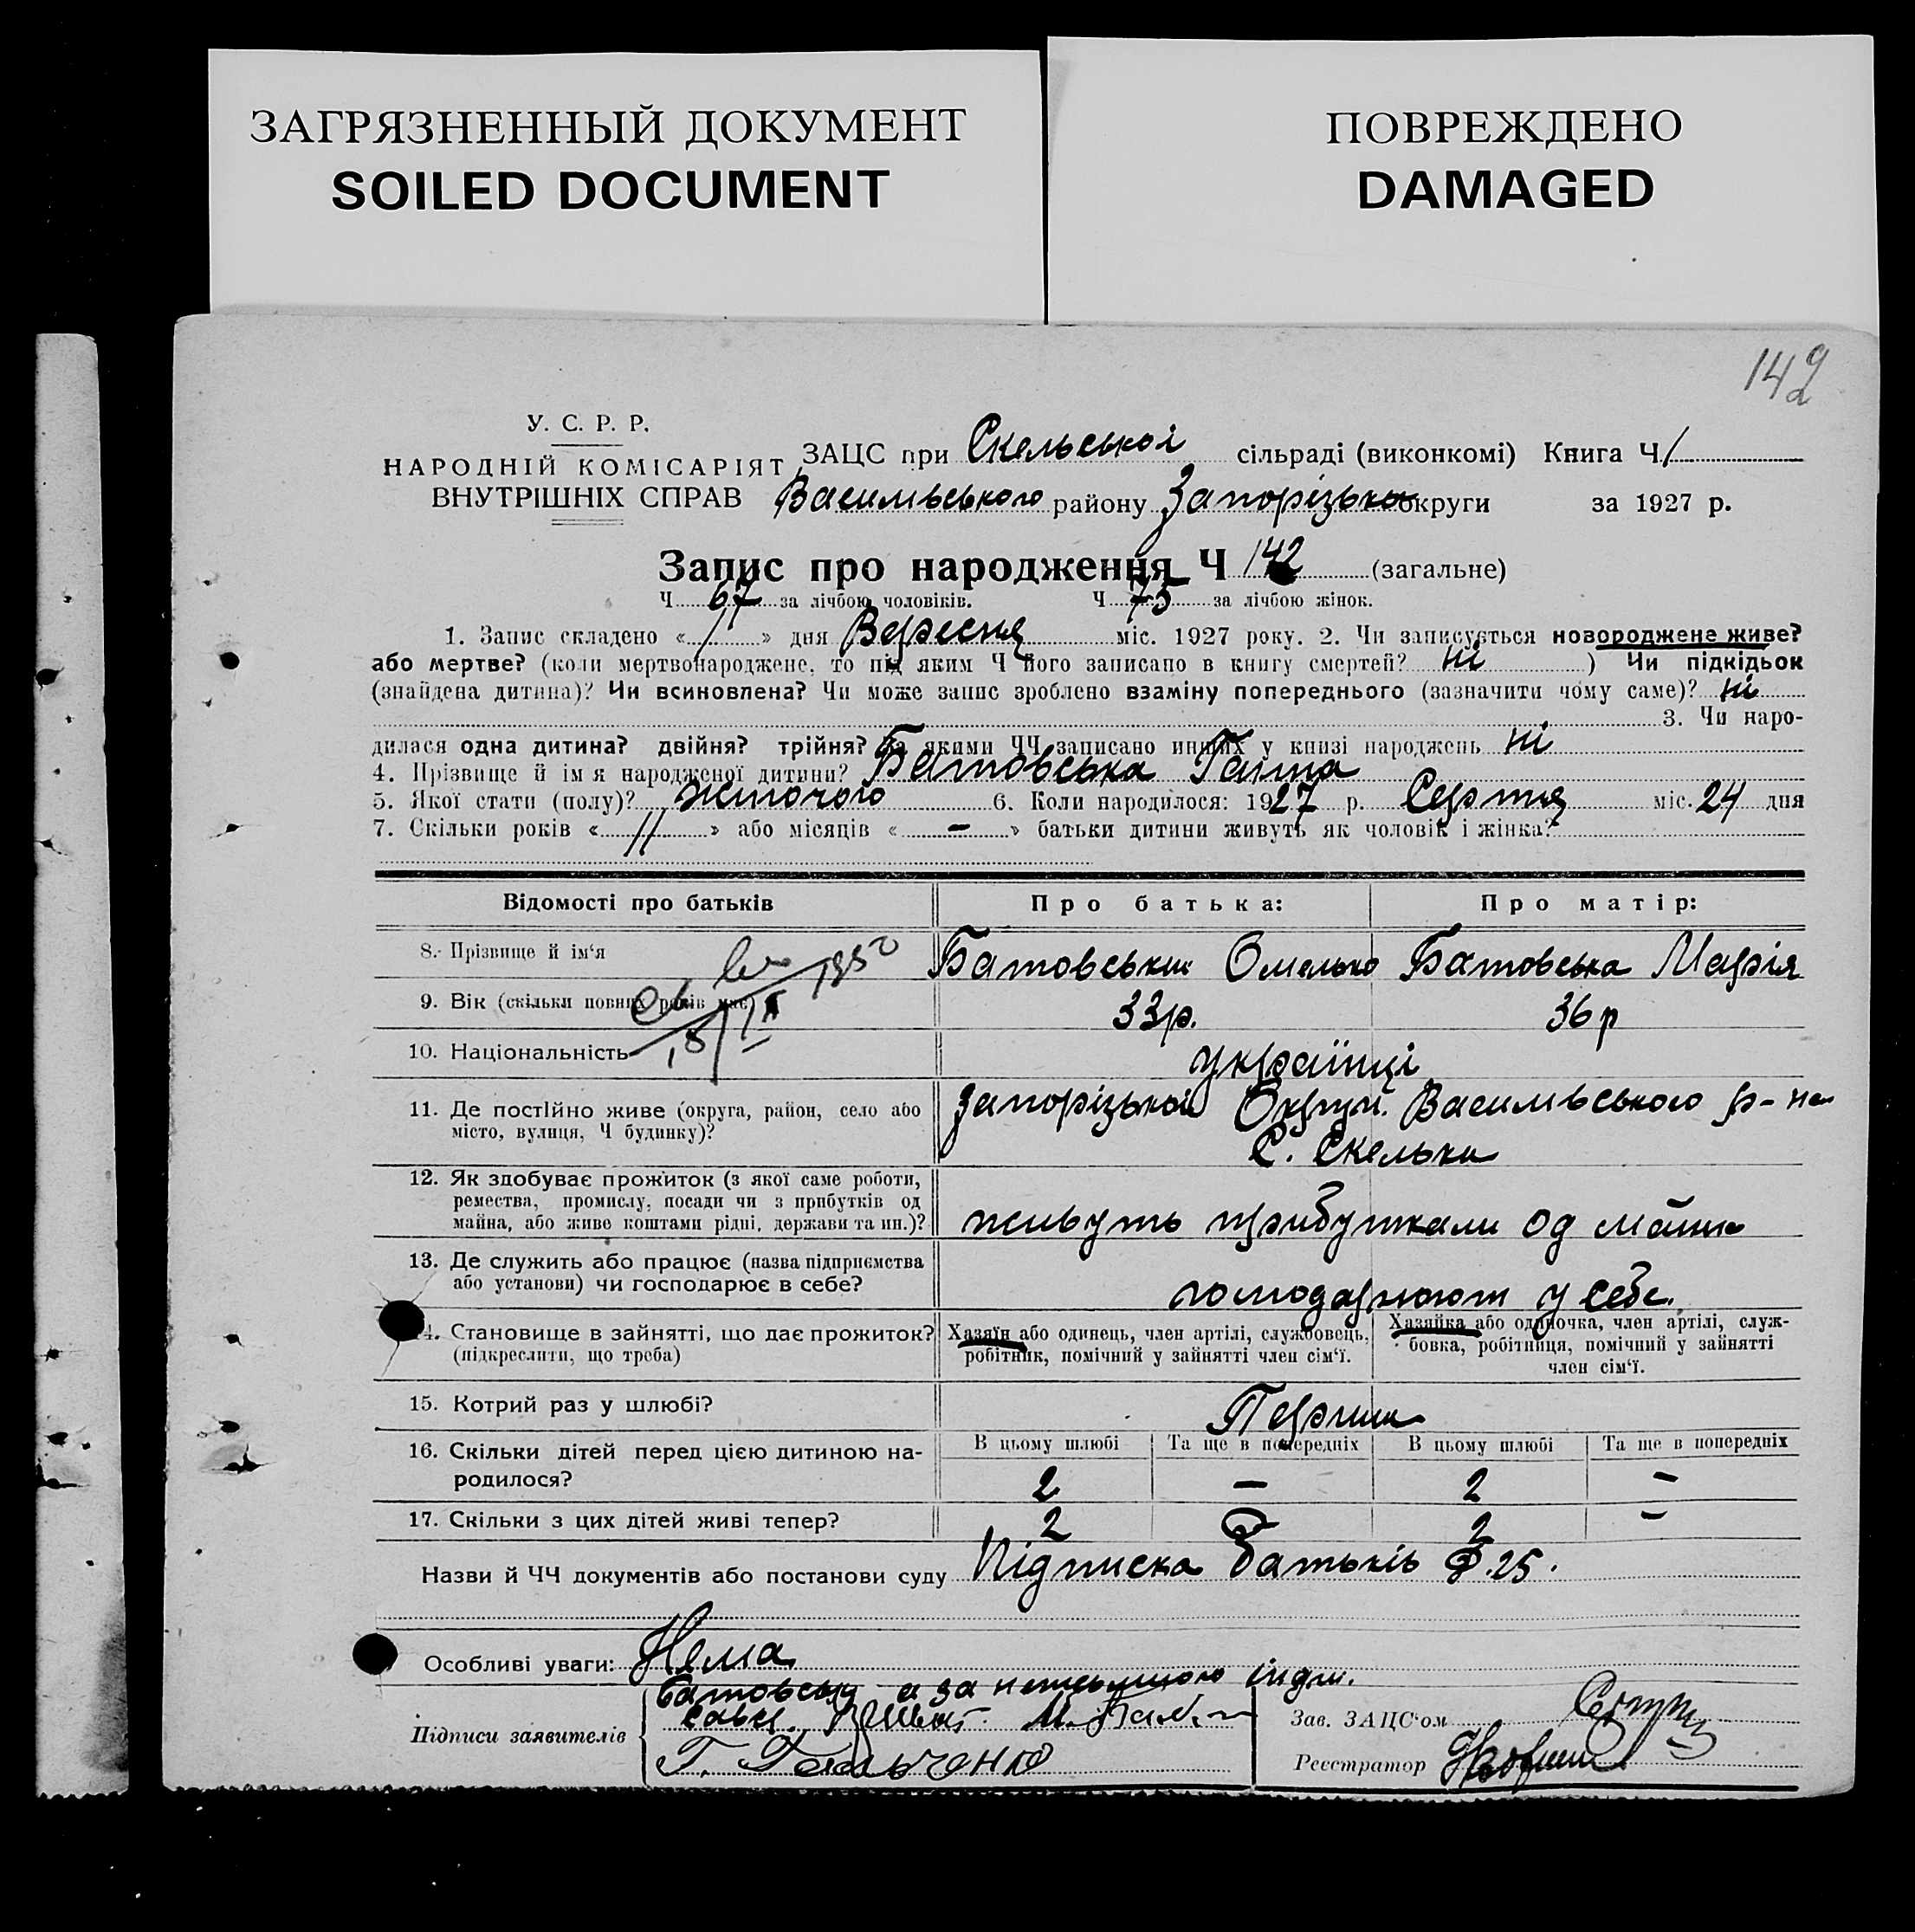 ЗАГРЯЗНЕННЫЙ ДОКУМЕНТ
SOILED DOCUMENT
ПОВРЕЖДЕНО
DAMAGED
142
У. С. Р. Р.
НАРОДНІЙ КОМІСАРІЯТ
ВНУТРІШНІХ СПРАВ
ЗАЦС при Скельській сільраді (виконкомі) Книга Ч. 1
Васильвського району Запорізької округи за 1927 р.
Запис про народження Ч 142 (загальне)
Ч 67 за лічбою чоловіків. Ч 75 за лічбою жінок.
1. Запис складено « 1 » дня Вересня міс. 1927 року. 2. Чи записується новороджене живе?
або мертве? (коли мертвонароджене, то під яким Ч його записано в книгу смертей? ні ) Чи підкідьок
(знайдена дитина)? Чи всиновлена? Чи може запис зроблено взаміну попереднього (зазначити чому саме)? ні
3. Чи наро-
дилася одна дитина? двійня? трійня? За якими ЧЧ записано инших у книзі народжень ні
4. Прізвище й ім'я народженої дитини? Батовська Ганна
5. Якої стати (полу)? жіночого 6. Коли народилося: 1927 р. Серпня міс. 24 дня
7. Скільки років « 11 » або місяців « — » батьки дитини живуть як чоловік і жінка?
Відомості про батьків Про батька: Про матір:
8. Прізвище й ім'я Батовський Омелько Батовська Марія
9. Вік (скільки повних років має) 33р. 36р
10. Національність українці
11. Де постійно живе (округа, район, село або
місто, вулиця, Ч будинку)?
Запорізької Округи Васильвського р-на
С. Скельки
12. Як здобуває прожиток (з якої саме роботи,
ремества, промислу, посади чи з прибутків од
майна, або живе коштами рідні, держави та ин.)?
живуть прибутками од майна
13. Де служить або працює (назва підприємства
або установи) чи господарює в себе?
господарюют у себе.
14. Становище в зайнятті, що дає прожиток?
(підкреслити, що треба)
Хазяїн або одинець, член артілі, службовець,
робітник, помічний у зайнятті член сім'ї.
Хазяйка або одиночка, член артілі, служ-
бовка, робітниця, помічний у зайнятті
член сім'ї.
15. Котрий раз у шлюбі? Перший
16. Скільки дітей перед цією дитиною на-
родилося?
В цьому шлюбі Та ще в попередніх В цьому шлюбі Та ще в попередніх
2 — 2 —
17. Скільки з цих дітей живі тепер? 2 — 2 —
Назви й ЧЧ документів або постанови суду Підписка батьків Ф.25.
Особливі уваги: Нема
Підписи заявителів
Батовський а за неписьмною
Г. Гальченко
Зав. ЗАЦС'ом
Реєстратор